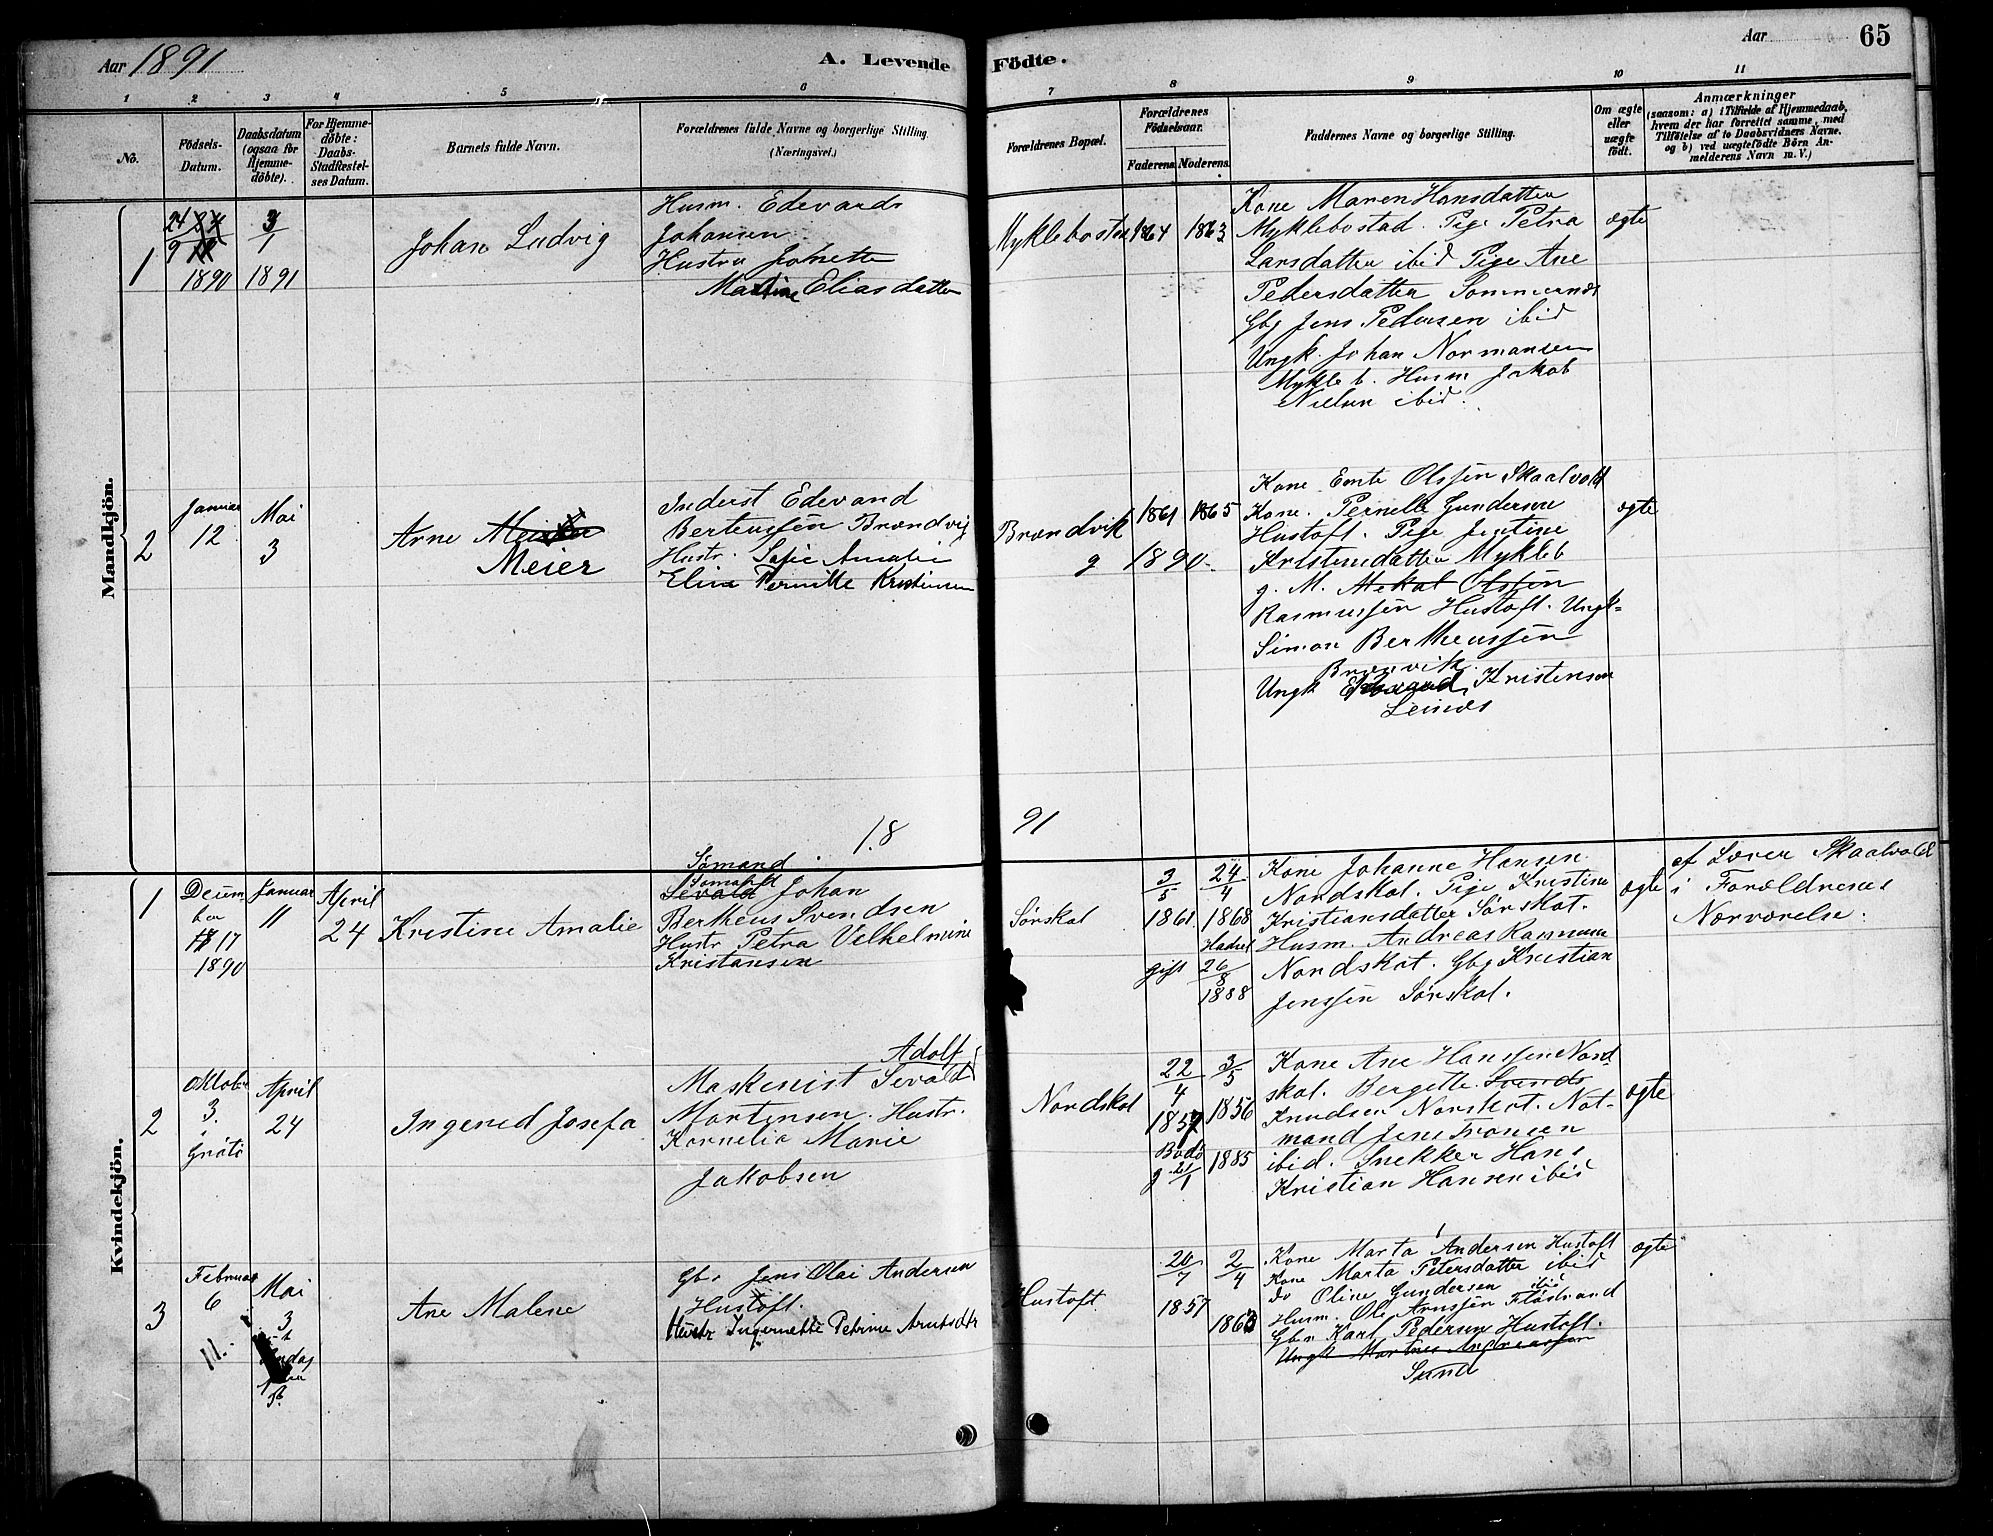 Aar 1891
A. Levende Födte.
Aar
65
1 2 3 4 5 6 7 8 9 10 11
No.
Födsels-
Datum.
Daabsdatum
(ogsaa for
Hjemme-
döbte).
For Hjemme-
döbte:
Daabs-
Stadfæstel-
ses Datum.
Barnets fulde Navn.
Forældrenes fulde Navne og borgerlige Stilling.
(Næringsvei.)
Forældrenes Bopæl.
Forældrenes
Födselsaar.
Faderens. Moderens.
Faddernes Navne og borgerlige Stilling.
Om ægte
eller
uægte
født.
Anmærkninger
(saasom: a) i Tilfælde af Hjemmedaab,
hvem der har forrettet samme, med
Tilföielse af to Daabsvidners Navne.
og b) ved uægtefödte Börn An-
melderens Navn m. V.)
Mandkjön.
1
24
9
1890
3
1
1891
Johan Ludvig
Husm. Edevards
Johansen
Hustru Johnette
Martine Eliasdatter
Myklebostad
1864
1863
Kone Maren Hansdatter
Myklebostad. Pige Petra
Larsdatter ibid Pige Ane
Pedersdatter Sommernes
Gbg Jens Pedersen ibid
Ungk. Johan Normansen
Mykleb. Husm Jakob
Nielsen ibid.
ægte
2
Januar
12
Mai
3
Arne
Meier
Inderst Edevand
Berteussen Brændvig
Hustr. Sofie Amalie
Elina Pernille Kristensen
Brændvik
g 1890.
1861
1865
Kone Emte Olssen Skaalvold
Kone. Pernelle Gundersen
Hustoft. Pige Jentine
Kristensdatter Mykleb
g. M. Mekal Olssen
Rasmussen Hustoft. Ungk-
Simon Bertheussen
Brænvik.
Ungk Kristensen
Leines
ægte
18 91
Kvindekjön.
1
Decem
ber
17
1890
Januar
11
April
24
Kristine Amalie
Sømand.
Sevald Johan
Bertheus Svendsen
Hustr Petra Velhelmine
Kristansen
Sørskot
3
5
1861
24
4
1868
Hadsel
gift 26
8
1888
Kone Johanne Hansen
Nordskot. Pige Kristine
Kristiansdatter Sørskot.
Husm. Andreas Rasmussen
Nordskot. Gbg Kristian
Jenssen Sørskot.
ægte
af Lærer Skaalvold
i Forældrenes
Nærværelse.
2
Oktober
3.
i
Grøtø
April
24
Ingerid Josefa
Adolf
Maskenist Sevald
Mortensen. Hustr.
Kornelia Marie
Jakobsen
Nordskot
22
4
1857
3
5
1856
Bodø
g 21
1
1885
Kone Ane Hanssen Nord
skot. Bergette Svends
Knudsen Norskot. Not-
mand Jens Fransen
ibid. Snekker Hans
Kristian Hansen ibid
ægte
3
Februar
6
11.
Mai
3
Ane Malene
Gbr Jens Olai Andersen
Hustoft.
Hustr Ingernette Petrine Arntsdtr
Hustoft
20
7
1857
2
4
1863
Kone Marta Andersen Hustoft
Kone Marta Petersdatter ibid
do Oline Gundersen ibid
Husm. Ole Arnssen Flødstrand
Gbr Karl Pedersen Hustoft.
Ungk Martnus Andreassen
Sund
ægte